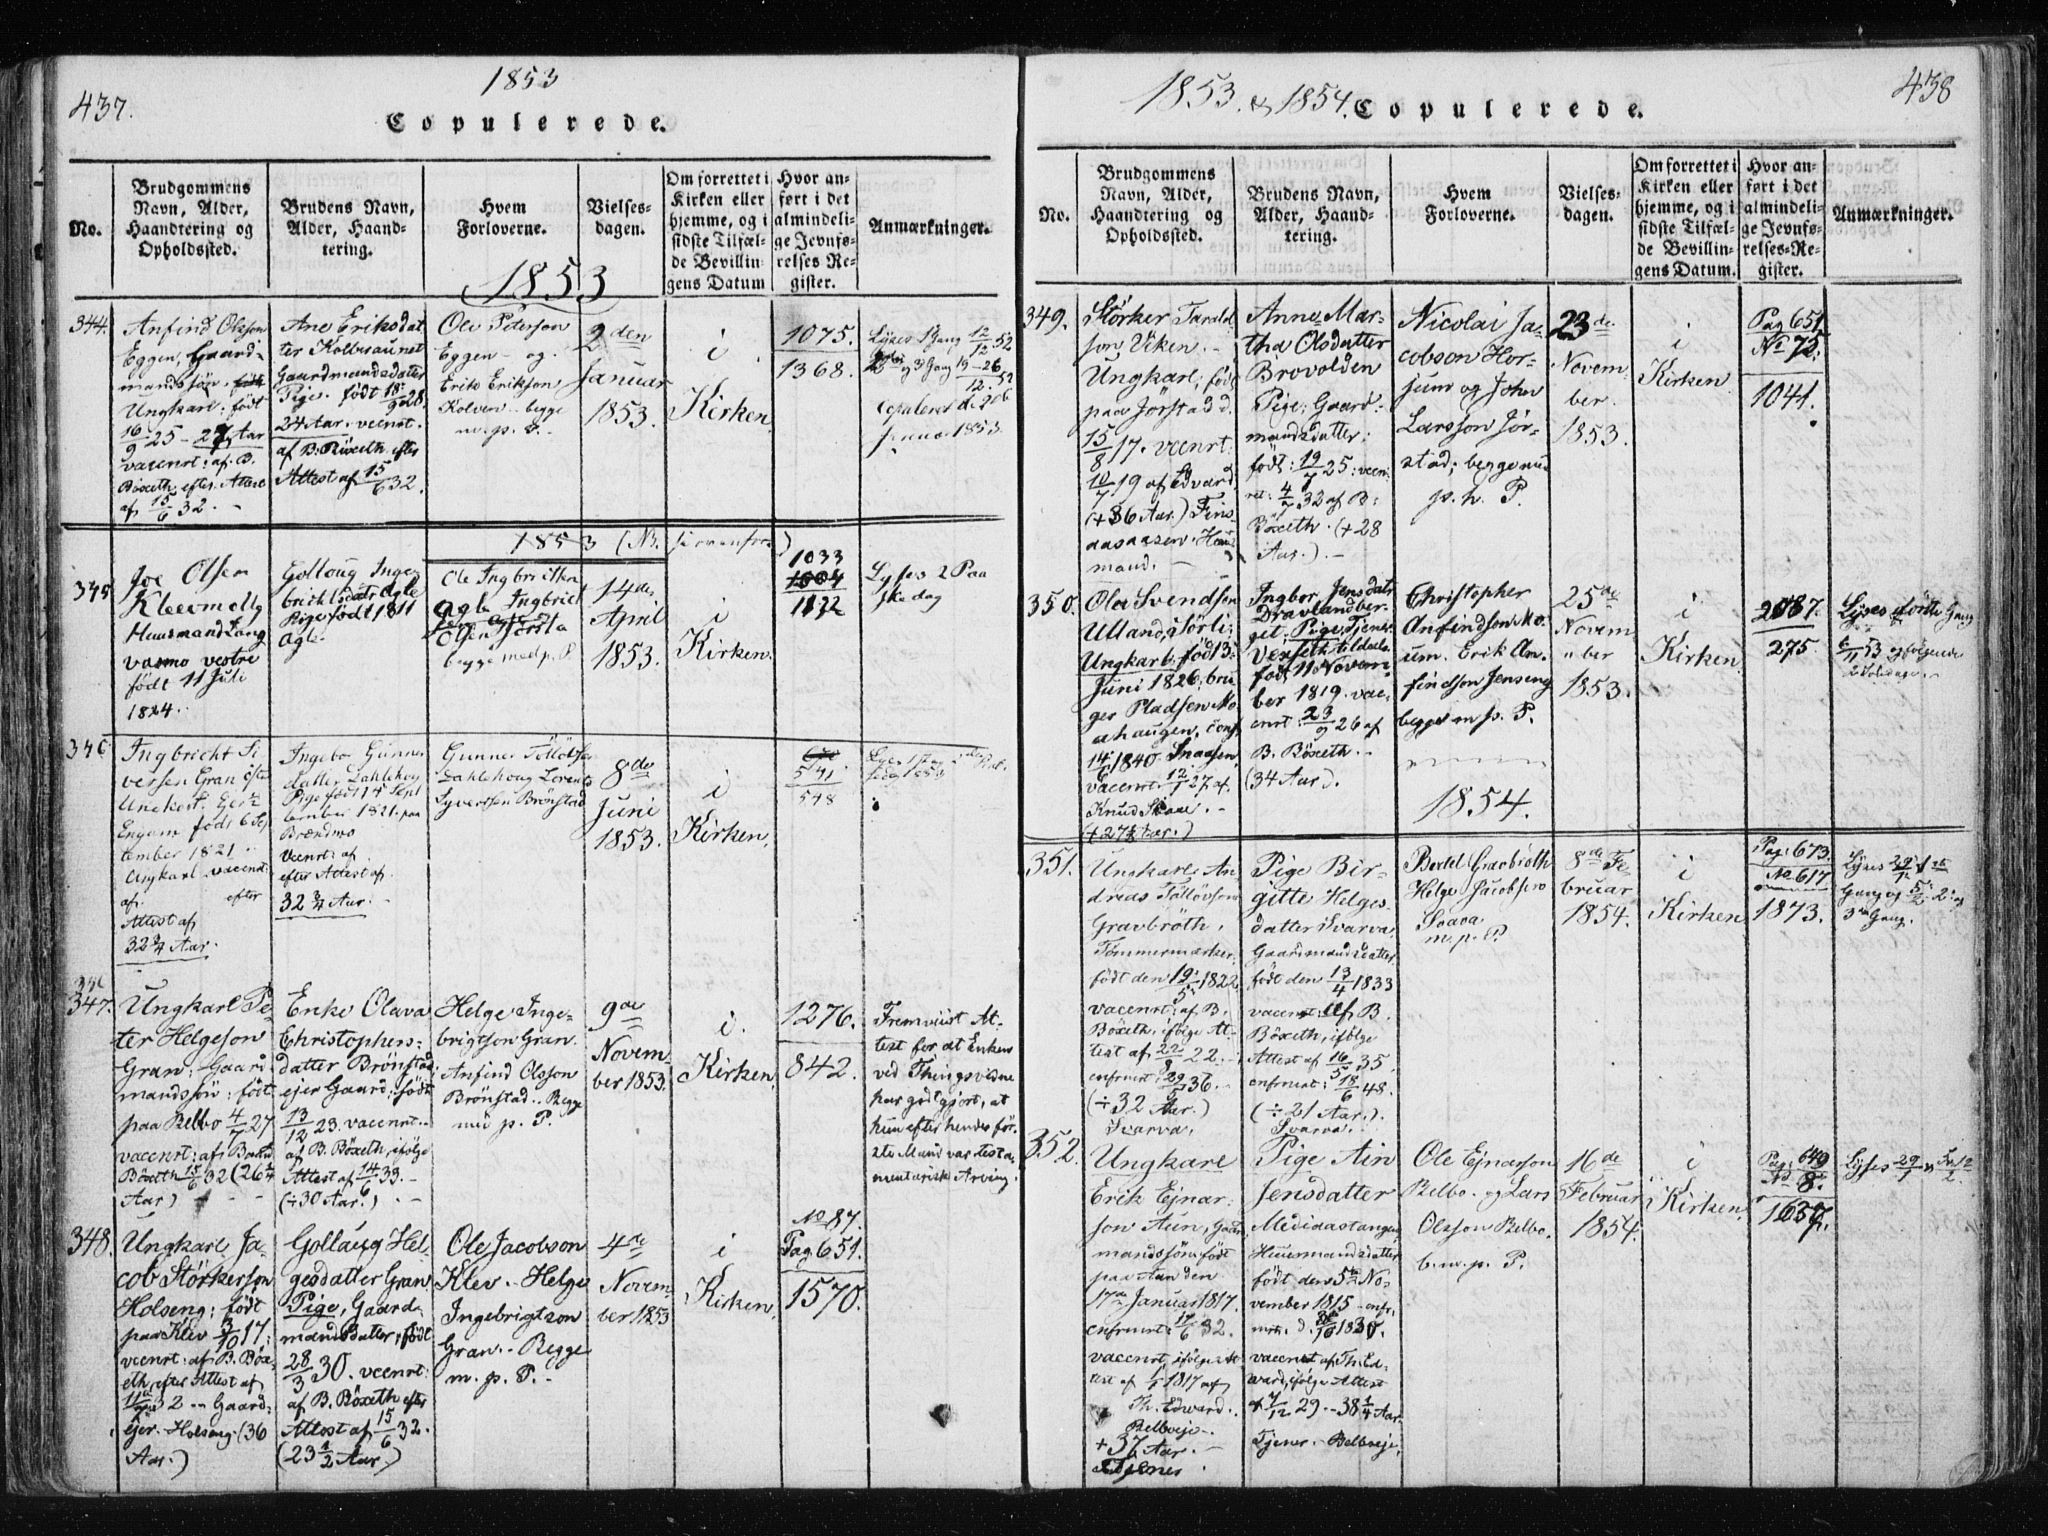 437.
1853
Copulerede.
No.
Brudgommens
Navn, Alder,
Haandtering og
Opholdssted.
Brudens Navn,
Alder, Haand-
tering.
Hvem
Forloverne.
Vielses-
dagen.
Om forrettet i
Kirken eller
hjemme, og i
sidste Tilfæl-
de Bevillin-
gens Datum
Hvor an-
ført i det
almindeli-
ge Jevnfø-
relses Re-
gister.
Anmærkninger.
1853
344.
Anfind Olsson
Eggen, Gaard-
mandssön.
Ungkarl: født
16/9 25 - 27 Aar
vacenrt: af B.
Böxeth efter Attest
af 15/6 32. -
Ane Eriksdat
ter Kolbraunet
Gaardmandsdatter
Pige. født 18/9 28.
24 Aar. vcenrt.
af B. Böxeth efter
Attest af 15/6 32.
Ole Peterson
Eggen - og
Erik Erikson
Kolven - begge
m. p. P.
2den
Januar
1853.
i
Kirken.
1075.
1368.
Lyses 1 Gang 12/12 52
og 3 Gang 19 - 26/12 52
Copuleret d. 2de
Januar 1853.
1853 (NB.
345
Joe Olsen
Kleevmelly
Huusmand
vestre
født 11 Juli
1824.
Golloug Inge
brichtsdatr Agle
Pige født 1811
Agle
Ole Ingbricten
Agle Ingbrict
Olsen
begge med p. P.
14de
April
1853.
i
Kirken.
1033
1004
1172
Lyses 2 Paa
ske dag
346
Ingbricht Si
versen Gran
født 6 Sep
tember 1821
Ungkarl vacenrt
af. efter
Attest af
32 3/4 Aar.
Ingebor Gunnes
datter Dahlehoug
Pige født 14 Sept
ember 1821. paa
Brændmo
Vcenrt: af
efter Attest af.
32 3/4 Aar.
Gunner Tollöfsen
Dahlehoug Lorents
Syverssen Brönstad
8de
Juni
1853.
i
Kirken.
541
548
347.
Ungkarl Pe-
ter Helgeson
Gran: Gaard-
mandssön: født
paa Belbo 4/7 27
vacenrt: af Bernt
Böxeth 15/6 32 (26 1/4
Aar)
Enke Olava
Christophers-
datter Brönstad
ejer Gaard: født
13/12 23. vacenrt.
af B. Böxeth, ifölge
Attest af 14/6 33.
(÷ 30 Aar.)
Helge Inge-
brigtson Gran.
Anfind Olsson
Brönstad.. Begge
med p. P.
9de
Novem-
ber 1853.
i.
Kirken.
1276.
842.
Fremviist At-
test for at Enken
ved Thingsvidne
har godtgjort, at
hun efter hendes för-
ste Mand var testa-
mentarisk Arving.
348.
Ungkarl Ja-
cob Störkerson
Holseng: født
paa Klev 3/10 17:
vcenrt: af B. Böx-
eth, efter Attest af
32 - Gaard-
ejer. Holseng. (36
Aar.)
Gollaug Hel-
gesdatter Gran
Pige, Gaard-
mandsdatter, født
28/3 30. vcenrt:
af B. Böxeth efter
Attest af 15/6 32.
(23 1/2 Aar.)
Ole Jacobson
Klev - Helge
Ingebrigtson
Gran. - Begge
m. p. P. -
4de
Novem-
ber 1853
i
Kirken.
No 87.
Pag 651.
1570.
1853. & 1854.
Copulerede.
438
No.
Brudgommens
Navn, Alder,
Haandtering og
Opholdssted.
Brudens Navn,
Alder, Haand-
tering.
Hvem
Forloverne.
Vielses-
dagen.
Om forrettet i
Kirken eller
hjemme, og i
sidste Tilfæl-
de Bevillin-
gens Datum.
Hvor an-
ført i det
almindeli-
ge Jevnfø-
relses-Re-
gister.
Anmærkninger.
349.
Störker Tarald-
son Viken. -
Ungkarl; født
paa Jörstad d.
15/8 17. vcenrt:
10/7 19 af Edvard
(+ 36 Aar.) Fins-
aasaasen. Huus-
mand. -
Anne Mar-
tha Olsdatter
Brovolden
Pige: Gaard-
mandsdatter:
født: 19/7 25: vcen-
rt: 4/7 32 af B:
Böxeth. (+ 28
Aar.). -
Nicolai Ja-
cobson Hor-
jum og John
Larsson Jör-
stad; begge med
p. h. P.
23de
Novem-
ber.
1853.
i
Kirken
Pag 651.
No 75.
1041.
350.
Ole Svendson
Ulland, i Sörli:
Ungkarl. född 3:
Juni 1826: bru-
ger Pladsen Mo-
ahaugen, conf.
14/6 1840 Snaasen
vacenrt: 12/7 27 af.
Knud Skaae. -
(+ 27 1/2 Aar.)
Ingbor Jensdatr
Dravlandber-
get. Pige, Tjener
født 11 Novem-
ber 1819. vac-
enrt: 23/9 26 af
B. Böxeth. -
(34 Aar).
Christopher
Anfindson Mo-
um. Erik An-
findson Jenseng
begge m. p. P.
25de
Novem-
ber
1853.
i
Kirken
2087.
275.
Lyses förste Gang
6/11 53 og følgende
2 Söndage. -
1854.
351.
Ungkarl An-
dreas Tollövson
Gravbröth,
Tömmermærker:
født den 19/5 1822
vacenrt: af B.
Böxeth, ifölge At-
test af 22/9 22. -
cnfrmrt: 29/5 36. -
(÷ 32 Aar.)
Svarva.
Pige Bir-
gitte Helges-
datter Svarva.
Gaardmandsdatter
født den 13/4 1833
vacenrt: af B.
Böxeth, ifölge
Attest af 16/5 35,
cnfrmrt: 18/6 48.
(÷ 21 Aar.).
Svarva.
Bertel Gravbröth
Helge Jacobson
Svava.
m. p. P.
8de Fe-
bruar
1854.
i
Kirken
Pag: 673.
No 617
1873.
Lyses 29/1 1ste
Gang og 5/2 2: og
3die Gang.
352.
Ungkarl
Erik Ejnar-
son Aun, Gaard-
mandssön: født
paa Aun den
17de Januar 1817.
cnfrmrt: 17/6 32.
vacenrt, ifölge At-
test af 1/7 1817 af
Th. Edward.
Belbveje.
+ 37 Aar. -
Tjener
Pige Ain
Jensdatter
Mediaastangen
Huusmandsdatter
født den 5te No-
vember 1815 - cnfr.
mrt. d. 1830.
vacenrt af Th. Ed-
ward, ifölge Attest
4/12 29 - 38 1/4 Aar.
Tjener. - Belbveje.
Ole Ejnarson
Belbo. og Lars
Olsson Belbo.
b. m. p. P.
16de
Februar
1854.
i
Kirken.
Pag: 649
No 8.
1637.
Lyses 29/1